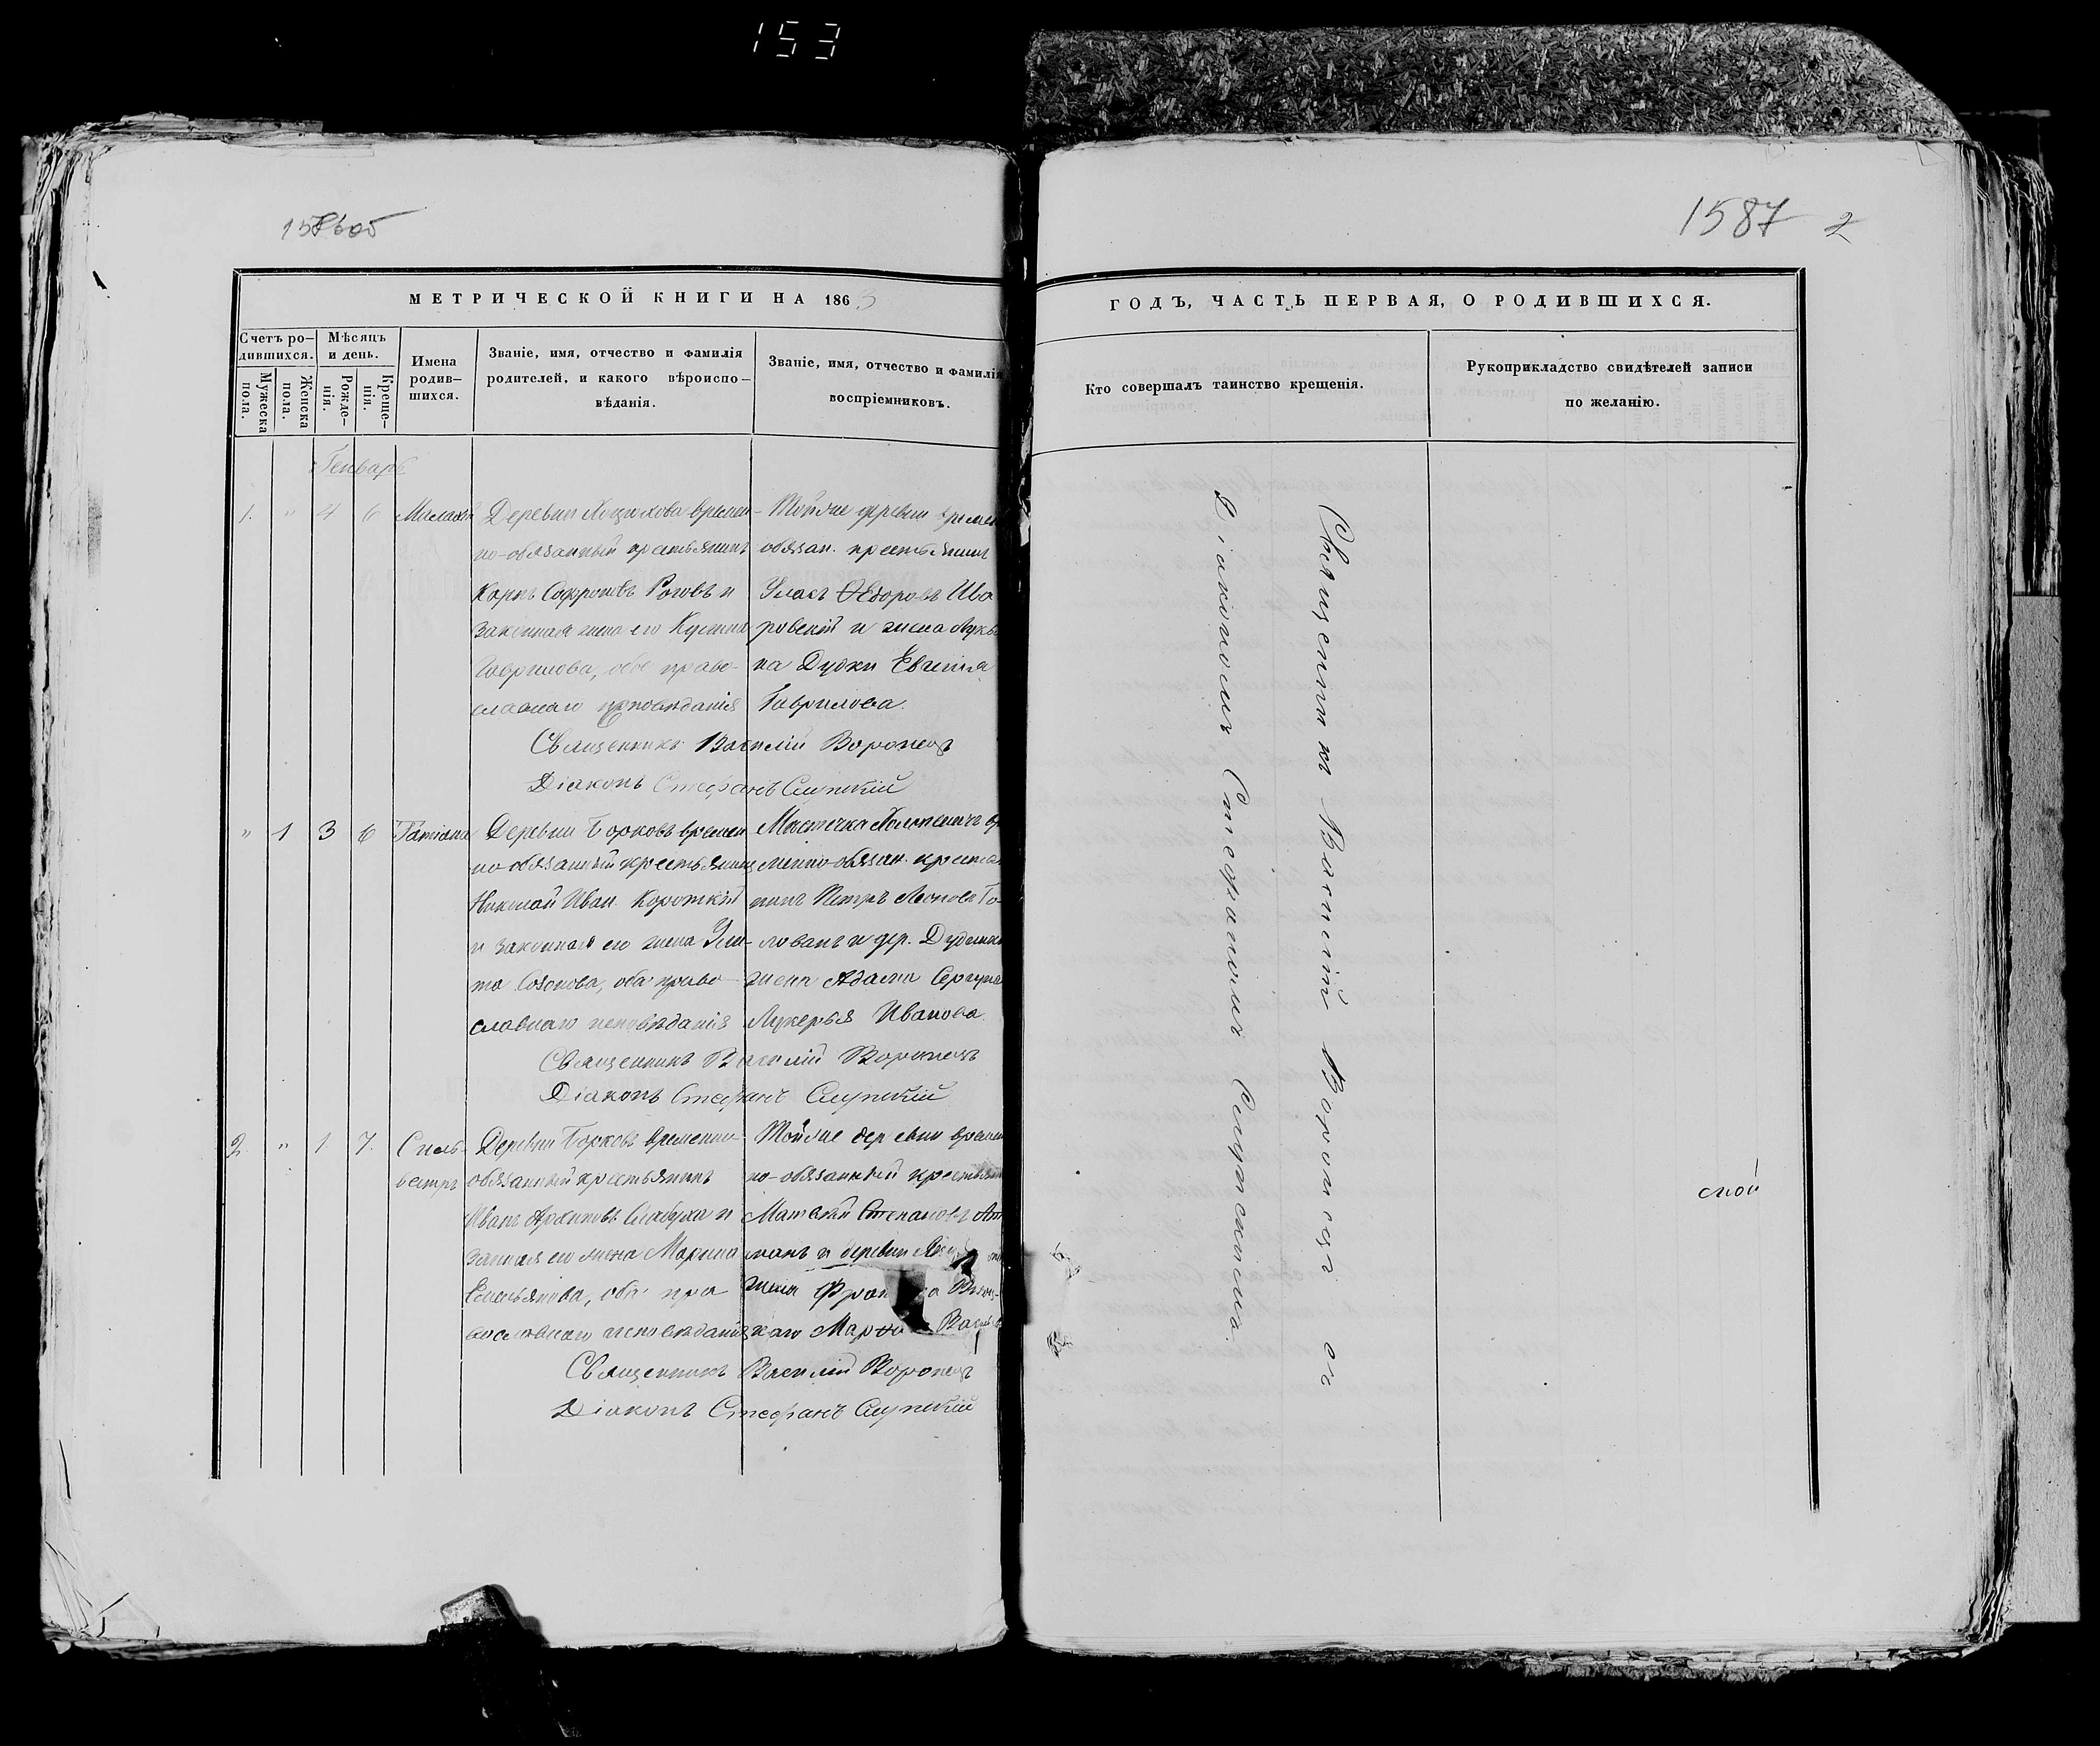 153
1587 2
МЕТРИЧЕСКОЙ КНИГИ НА 1863
ГОДЪ, ЧАСТЬ ПЕРВАЯ, О РОДИВШИХСЯ.
Счетъ ро-
дившихся.
Мужеска
пола.
Женска
пола.
Мѣсяцъ
и день.
Рожде-
нія.
Креще-
нія.
Имена
родив-
шихся.
Званіе, имя, отчество и фамилія
родителей, и какого вѣроиспо-
вѣданія.
Званіе, имя, отчество и фамилія
воспріемниковъ.
Кто совершалъ таинство крещенія.
Рукоприкладство свидѣтелей записи
по желанію.
Генварь
1. " 4 6 Малахій
Деревни времен-
но-обязанный крестьянинъ
Карпъ Софроновъ Роговъ и
законная жена его
Гаврилова, оба право-
славнаго исповѣданія
Тойже деревни времен
обязан. крестьянинъ
Уласъ Ѳедоровъ
и жена
Евгенія
Гаврилова.
Священникъ Василій Воронецъ
Діаконъ Стефанъ Слупскій
" 1 3 6 Татіана
Деревни Борковъ времен
но-обязанный крестьянинъ
Николай Иван. Короткій
и законная его жена Ули-
та Созонова, оба право-
славнаго исповѣданія
Мѣстечка
менно-обязан. крестья
нинъ Петръ Леоновъ Го-
лованъ и дер.
жена Адама
Лукерья Иванова.
Священникъ Василій Воронецъ
Діаконъ Стефанъ Слупскій
2 " 1 7. Силь-
вестръ
Деревни Борковъ временно-
обязанный крестьянинъ
Иванъ Архиповъ и
законная его жена Марина
Емельянова, оба пра
вославнаго исповѣданія
Тойже деревни времен
но-обязанный крестьянин
Матвѣй Степановъ
и деревни
жена
каго
Священникъ Василій Воронецъ
Діаконъ Стефанъ Слупскій
Священникъ Василій Воронецъ съ
Діакономъ Стефаномъ